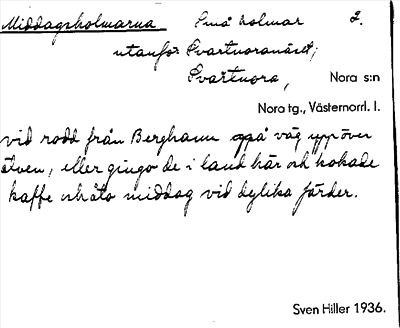 Middagsholmarna Små holmar 2.
utanför Svartnoranäset;
Svartnora, Nora s:n
Nora tg., Västernorrl. l.
vid rodd från Berghamn på väg upp över
älven, eller gingo de i land här och kokade
kaffe och åto middag vid dylika färder.
Sven Hiller 1936.